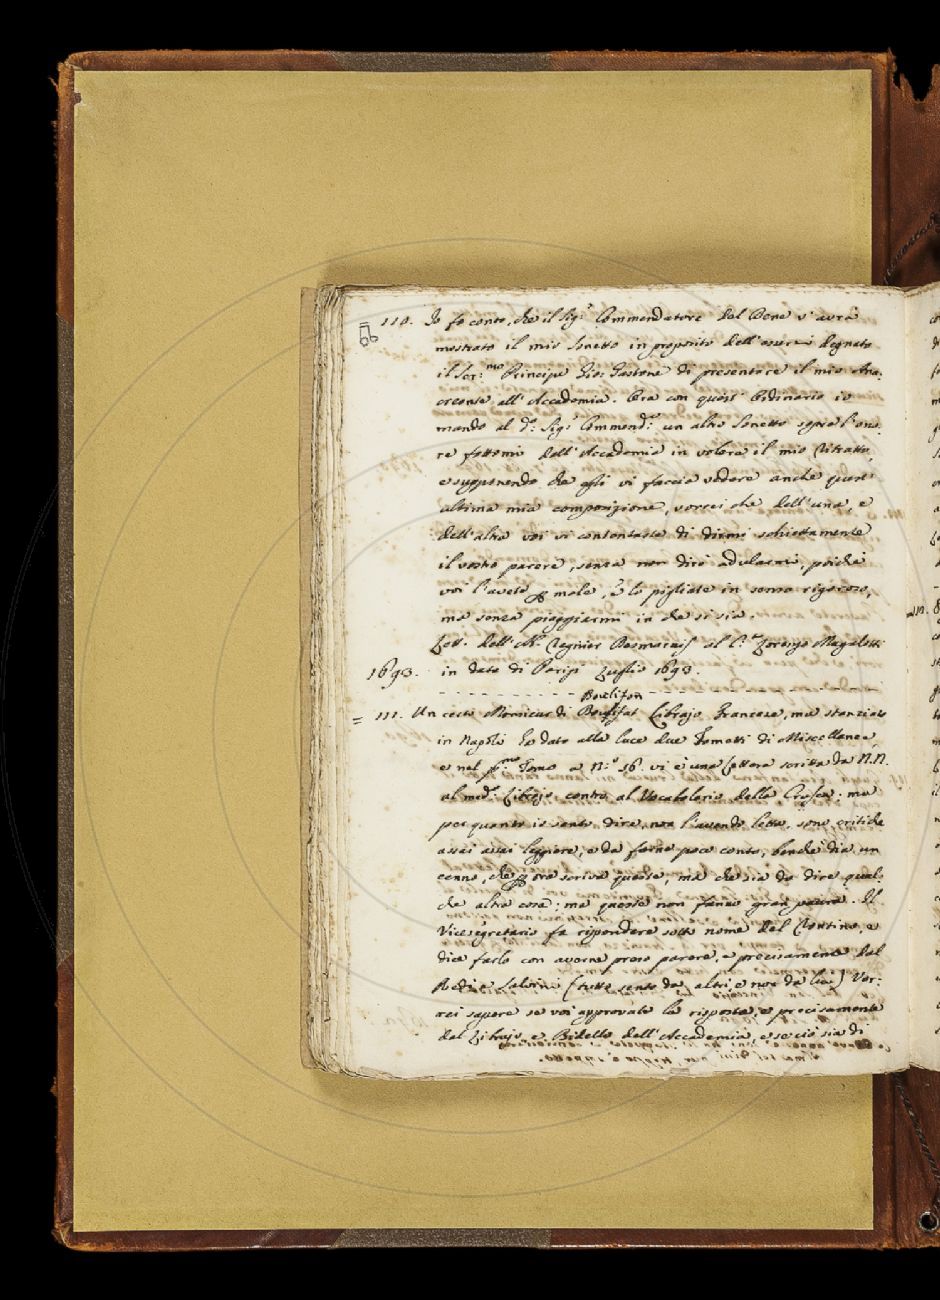 110. Io fo conto, che il Sig.r Commendatore Del Bene v'avrà
mostrato il mio Sonetto in proposito dell'essersi degnato
il Ser.mo Principe Gio: Gastone di presentare il mio Ana-
creonte all'Accademia. Ora con quest'Ordinario io
mando al d.o Sig.r Commend.re un altro Sonetto sopra l'ono-
re fattomi dall'Accademia in volere il mio Ritratto,
e supponendo che egli vi faccia vedere anche quest'
ultima mia composizione, vorrei che dell'una, e
dell'altra voi vi contentaste di dirmi schiettamente
il vostro parere, senza non dirò adularmi, poichè
voi l'avete p male, e lo pigliate in senso rigoroso,
ma senza piaggiarmi in che si sia.
Lett. dell'Ab. Regnier Desmarais al C.te Lorenzo Magalotti
1693. in data di Parigi Luglio 1693.
Boulifon
= 111. Un certo Monsieur di Libraio Francese, ma stanziato
in Napoli ha dato alla luce due Tometti di Miscellanea,
e nel p.mo Tomo a N.o 16. vi è una Lettera scritta da N.N.
al med.o Libraio contro al Vocabolario della Crusca: ma
per quanto io sento dire, non l'avendo letta, sono critiche
assai assai leggiere, e da farne poco conto, benchè dia un
cenno, che p ora scriva queste, ma che sia da dire qual-
che altra cosa; ma queste non fanno gran paura. Il
Vicesegretario fa rispondere sotto nome del, e
dice farlo con averne preso parere, e precisamente dal
Redi e Salvini (tutto sento da altri, e non da lui) Vor-
rei sapere se voi approvate la risposta, e precisamente
dal Libraio, e Bidello dell'Accademia, e se ciò sia di